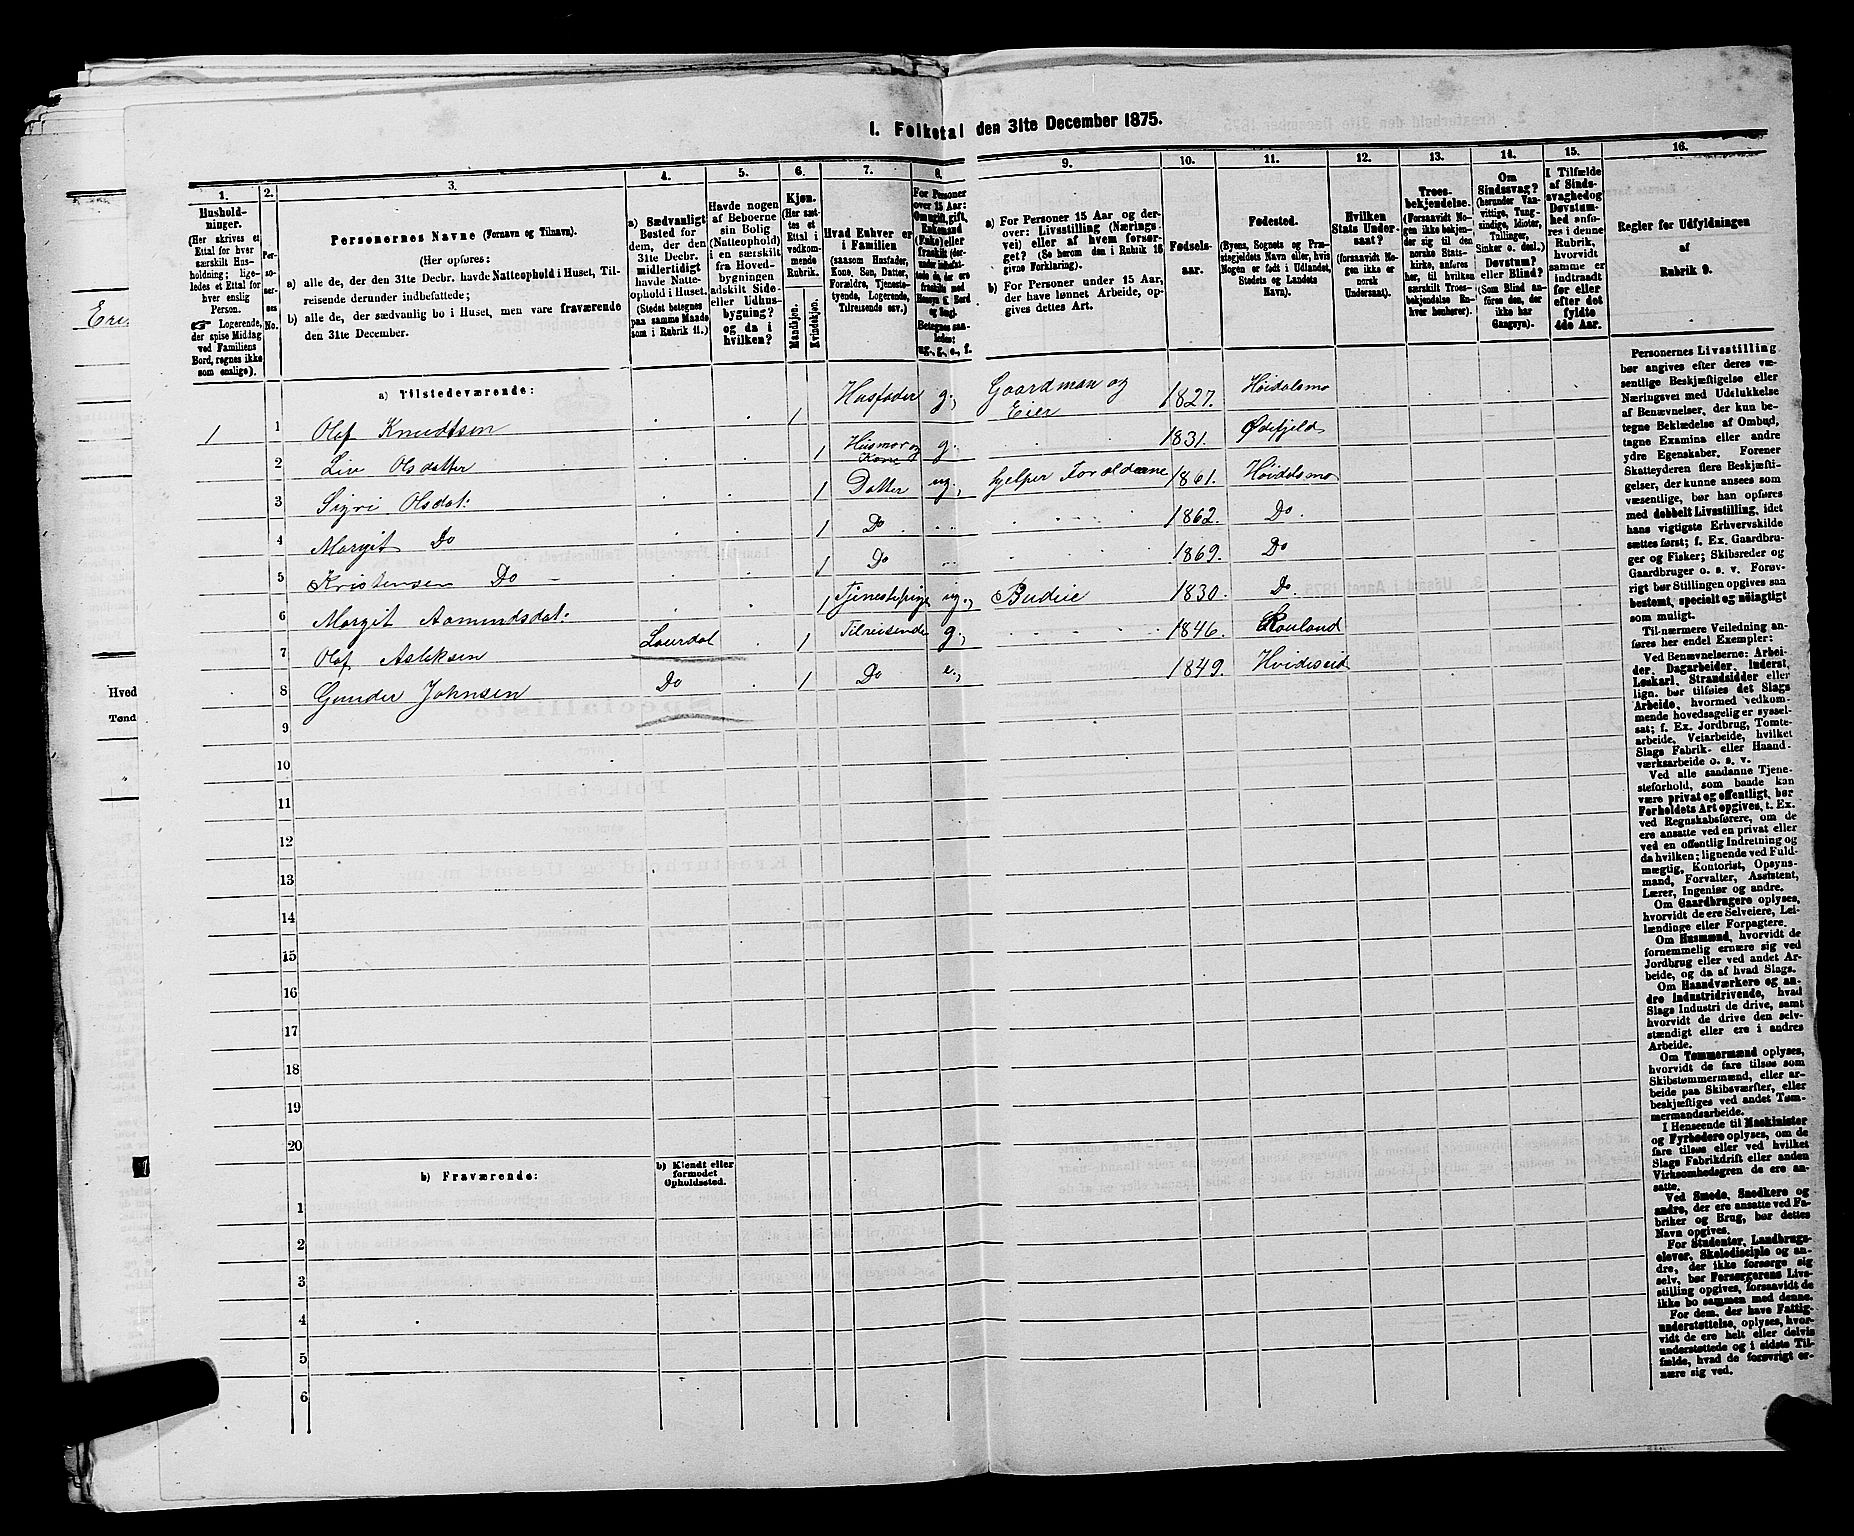 I. Folketal den 31te December 1875.
1. 2. 3. 4. 5. 6. 7. 8. 9. 10. 11. 12. 13. 14. 15. 16.
Hushold-
ninger.
(Her skrives et
Ettal for hver
særskilt Hus-
holdning; lige-
ledes et Ettal for
hver enslig
Person.
☞ Logerende,
der spise Middag
ved Familiens
Bord, regnes ikke
som enslige).
Per-
so-
ner-
nes
No.
Personernes Navne (Fornavn og Tilnavn).
(Her opføres:
a) alle de, der den 31te Decbr. havde Natteophold i Huset, Til-
reisende derunder indbefattede;
b) alle de, der sædvanlig bo i Huset, men vare fraværende
den 31te December.
a) Sædvanligt
Bosted for
dem, der den
31te Decbr.
midlertidigt
havde Natte-
ophold i Huset.
(Stedet betegnes
paa samme Maade
som i Rubrik 11.)
Havde nogen
af Beboerne
sin Bolig
(Natteophold)
i en særskilt
fra Hoved-
bygningen
adskilt Side-
eller Udhus-
bygning?
og da i
hvilken?
Kjøn.
(Her sæt-
tes et
Ettal i
vedkom-
mende
Rubrik.
Mandkjøn.
Kvindekjøn.
Hvad Enhver er
i Familien
(saasom Husfader,
Kone, Søn, Datter,
Forældre, Tjeneste-
tyende, Logerende,
Tilreisende osv.)
For Personer
over 15 Aar:
Om ugift, gift,
Enkemand
(Enke) eller
fraskilt
ug., g., e., f.
a) For Personer 15 Aar og der-
over: Livsstilling (Nærings-
vei) eller af hvem forsør-
get? (Se herom den i Rubrik 16
givne Forklaring).
b) For Personer under 15 Aar,
der have lønnet Arbeide, op-
gives dettes Art.
Fødsels-
aar.
Fødested.
(Byens, Sognets og Præ-
stegjeldets Navn eller, hvis
Nogen er født i Udlandet,
Stedets og Landets
Navn).
Hvilken
Stats Under-
saat?
(forsaavidt No-
gen ikke er
norsk
Undersaat).
Troes-
bekjendelse.
(Forsaavidt No-
gen ikke bekjen-
der sig til den
norske Stats-
kirke, anføres
her, til hvilken
særskilt Troes-
bekjendelse En-
hver henhører).
Om
Sindssvag?
(herunder Van-
vittige, Tung-
sindige, Idioter,
Tullinger,
Sinker o. desl.)
Døvstum?
eller Blind?
(Som Blind an-
føres den, der
ikke har
Gangsyn).
I Tilfælde
af Sinds-
svaghed og
Døvstum-
hed anfø-
res i denne
Rubrik,
hvorvidt
samme er
indtraadt
før eller
efter det
fyldte
4de Aar.
Regler for Udfyldningen
af
Rubrik 9.
a) Tilstedeværende:
1 1 Olaf Knudtsen 1 Husfader g., Gaardman og Eier 1827. Høidalsmo
2 Liv Olsdatter 1 Husmor og Kone g. 1831. Øifjeld
3 Sigri Olsdat: 1 Datter ug., hjelper Foraldrene 1861. Høidalsmo
4 Margit Do 1 Do 1862. Do.
5 Kristensen Do 1 Do 1869. Do
6 Margit Aamundsdat: 1 Tjenestepige ug., Budeie 1830. Do.
7 Olaf Aslaksen Laurdal 1 Tilreisende g., 1846. Rauland
8 Gunder Johnsen Do 1 Do e., 1849. Hvideseid
9
10
11
12
13
14
15
16
17
18
19
20
b) Fraværende:
b) Kjendt eller
formodet
Opholdssted.
1
2
3
4
5
6
Personernes Livsstilling
bør angives efter deres væ-
sentlige Beskjæftigelse eller
Næringsvei med Udelukkelse
af Benævnelser, der kun be-
tegne Beklædelse af Ombud,
tagne Examina eller andre
ydre Egenskaber. Forener
Skatteyderen flere Beskjæfti-
gelser, der kunne ansees som
væsentlige, bør han opføres
med dobbelt Livsstilling, idet
hans vigtigste Erhvervskilde
sættes først; f. Ex. Gaardbru-
ger og Fisker; Skibsreder og
Gaardbruger o. s. v. Forøv-
rigt bør Stillingen opgives saa
bestemt, specielt og nøiagtigt
som muligt.
Til nærmere Veiledning an-
føres her endel Exempler:
Ved Benævnelserne: Arbei-
der, Dagarbeider, Inderst,
Løskarl, Strandsidder eller
lign. bør tilføies det Slags
Arbeide, hvormed vedkom-
mende hovedsagelig er syssel-
sat; f. Ex. Jordbrug, Tomte-
arbeide, Veiarbeide, hvilket
Slags Fabrik- eller Haand-
værksarbeide o. s. v.
Ved alle saadanne Tjene-
steforhold, som baade kan
være privat og offentligt, bør
Forholdets Art opgives, t. Ex.
ved Regnskabsførere, om de
ere ansatte ved en privat eller
ved en offentlig Indretning og
da hvilken; lignende ved Fuld-
mægtig, Kontorist, Opsyns-
mand, Forvalter, Assistent,
Lærer, Ingeniør og andre.
Om Gaardbrugere oplyses,
hvorvidt de ere Selveiere, Lei-
lændinge eller Forpagtere.
Om Husmænd, hvorvidt de
fornemmelig ernære sig ved
Jordbrug eller ved andet Ar-
beide, og da af hvad Slags.
Om Haandværkere og an-
dre Industridrivende, hvad
Slags Industri de drive, samt
hvorvidt de drive den selv-
stændigt eller ere i andres
Arbeide.
Om Tømmermænd oplyses,
hvorvidt de fare tilsøs som
Skibstømmermænd, eller ar-
beide paa Skibsværfter, eller
beskjæftiges ved andet Tøm-
mermandsarbeide.
I Henseende til Maskinister
og Fyrbødere oplyses, om de
fare tilsøs eller ved hvilket
Slags Fabrikdrift eller anden
Virksomhedsgren de ere an-
satte.
Ved Smede, Snedkere og
andre, der ere ansatte ved Fa-
briker og Brug, bør dettes
Navn opgives.
For Studenter, Landbrugs-
elever, Skoledisciple og an-
dre, der ikke forsørge sig
selv, bør Forsørgerens Livs-
stilling opgives, forsaavidt de
ikke bo sammen med denne.
For dem, der have Fattig-
understøttelse, oplyses, hvor-
vidt de ere helt eller delvis
understøttede og i sidste Til-
fælde, hvad de forøvrigt er-
nære sig ved.
Hved
Tønd